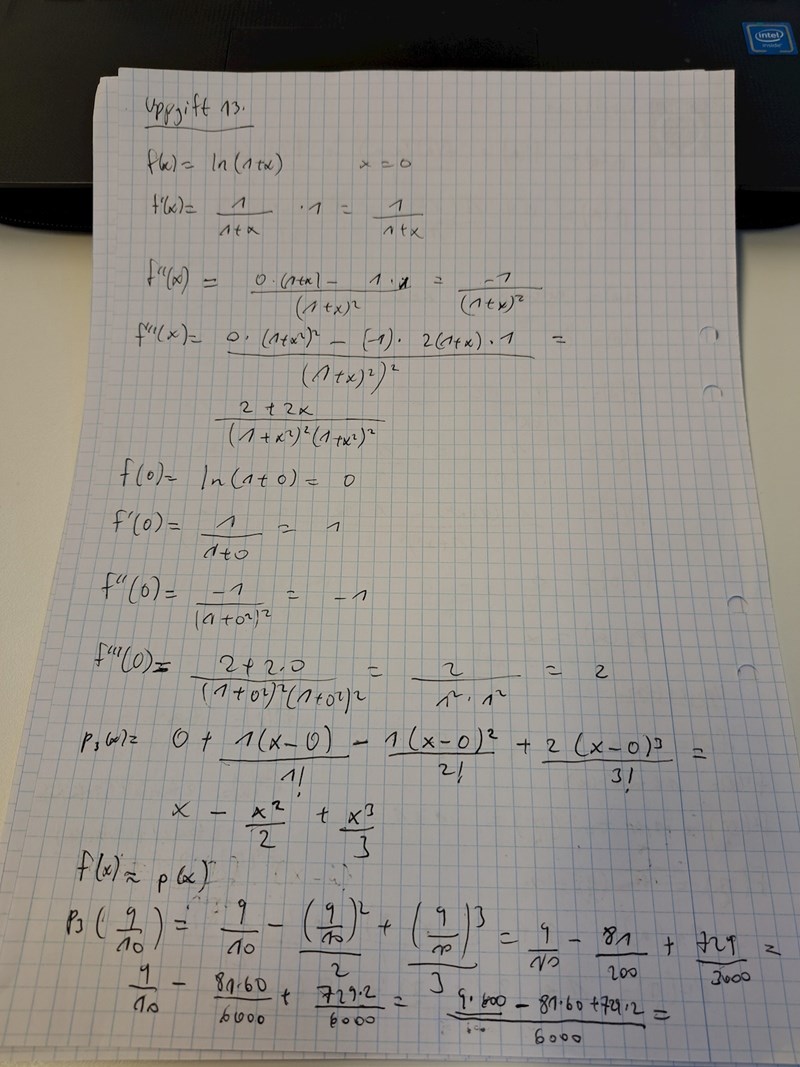 intel
inside
Uppgift 13.
f(x) = ln(1+x) x = 0
f'(x) = 1/(1+x) · 1 = 1/(1+x)
f''(x) = (0·(1+x) - 1·1)/(1+x)² = -1/(1+x)²
f'''(x) = (0·(1+x²)² - (-1)·2(1+x)·1)/((1+x)²)² =
(2+2x)/((1+x²)²(1+x²)²)
f(0) = ln(1+0) = 0
f'(0) = 1/(1+0) = 1
f''(0) = -1/(1+0²)² = -1
f'''(0) = (2+2·0)/((1+0²)²(1+0²)²) = 2/(1²·1²) = 2
p₃(x) = 0 + 1(x-0)/1! - 1(x-0)²/2! + 2(x-0)³/3! =
x - x²/2 + x³/3
f(x) ≈ p(x)
P₃(9/10) = 9/10 - (9/10)²/2 + (9/10)³/3 = 9/10 - 81/200 + 729/3000 =
9/10 - 81·60/6000 + 729·2/6000 = (9·600 - 81·60 + 729·2)/6000 =